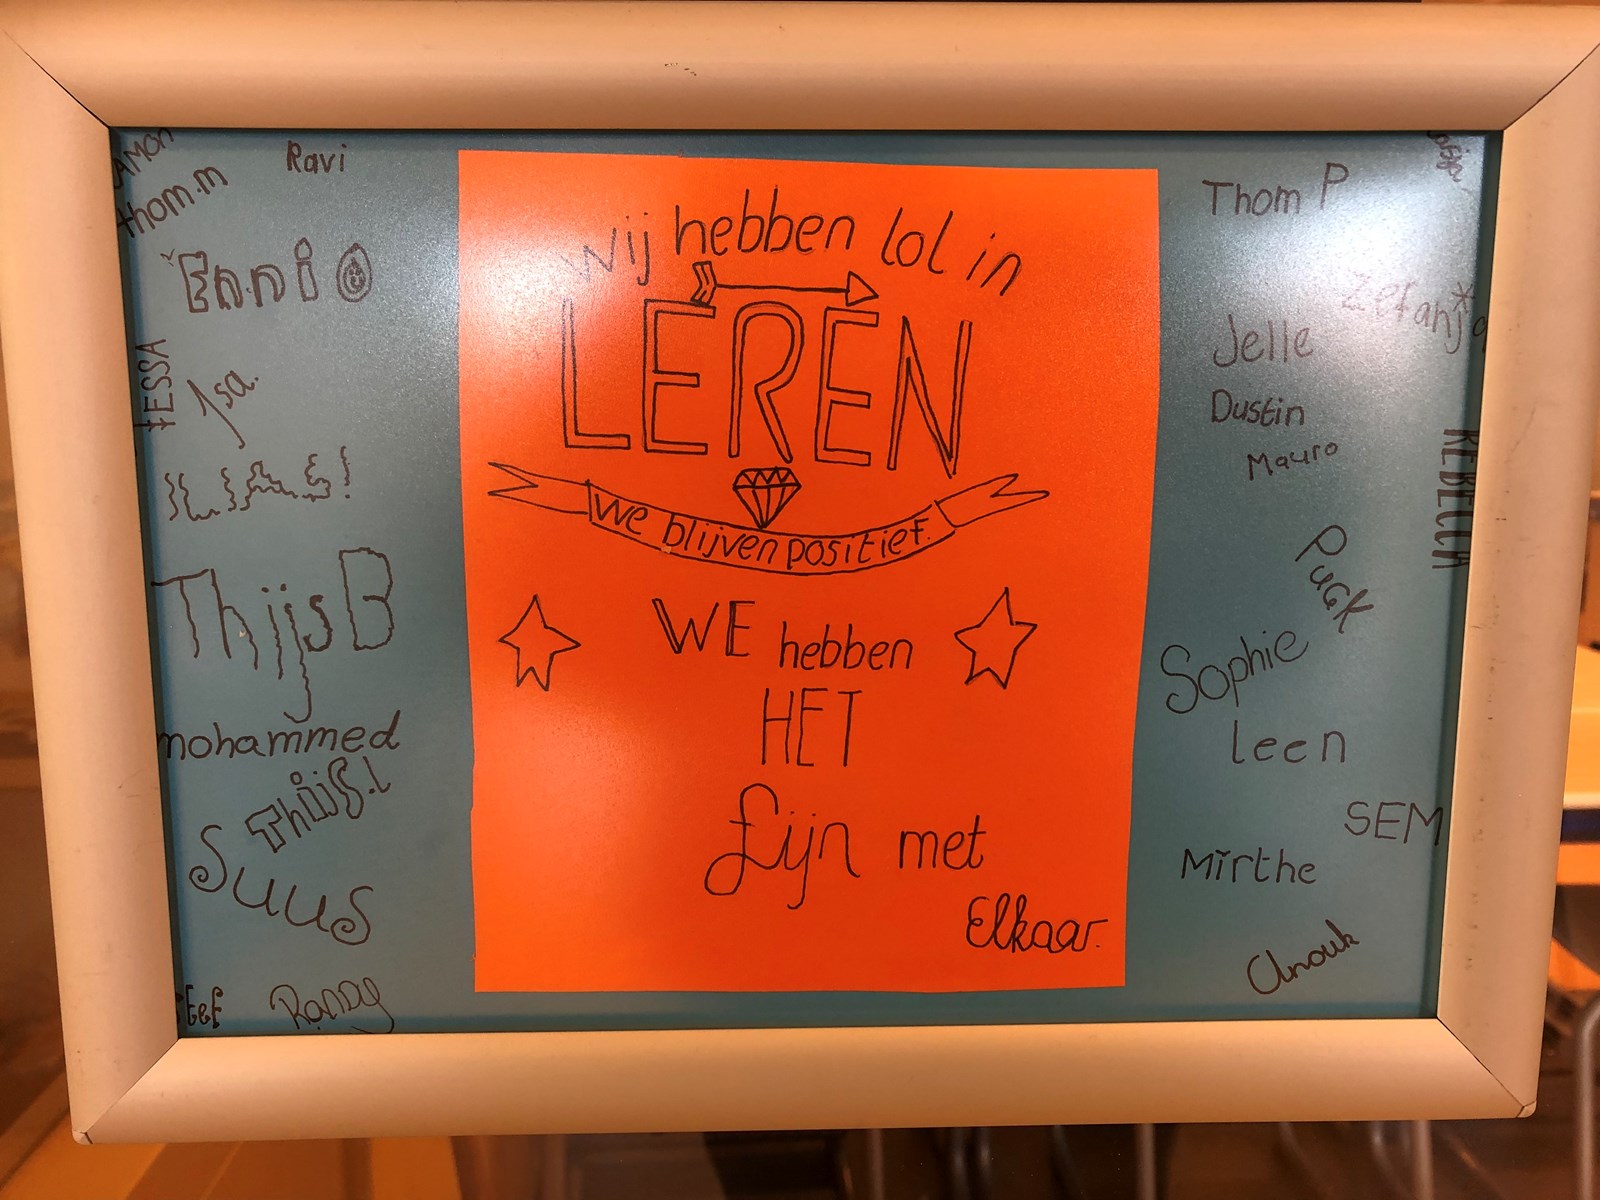 thom.m
Ravi
Ennio
TESSA
Isa.
Thijs B
mohammed
Thijs.l
Suus
Randy
wij hebben lol in
LEREN
We blijven positief.
WE hebben
HET
fijn met
Elkaar.
Thom P
Zefanja
Jelle
Dustin
Mauro
REBECCA
Puck
Sophie
leen
SEM
Mirthe
Anouk